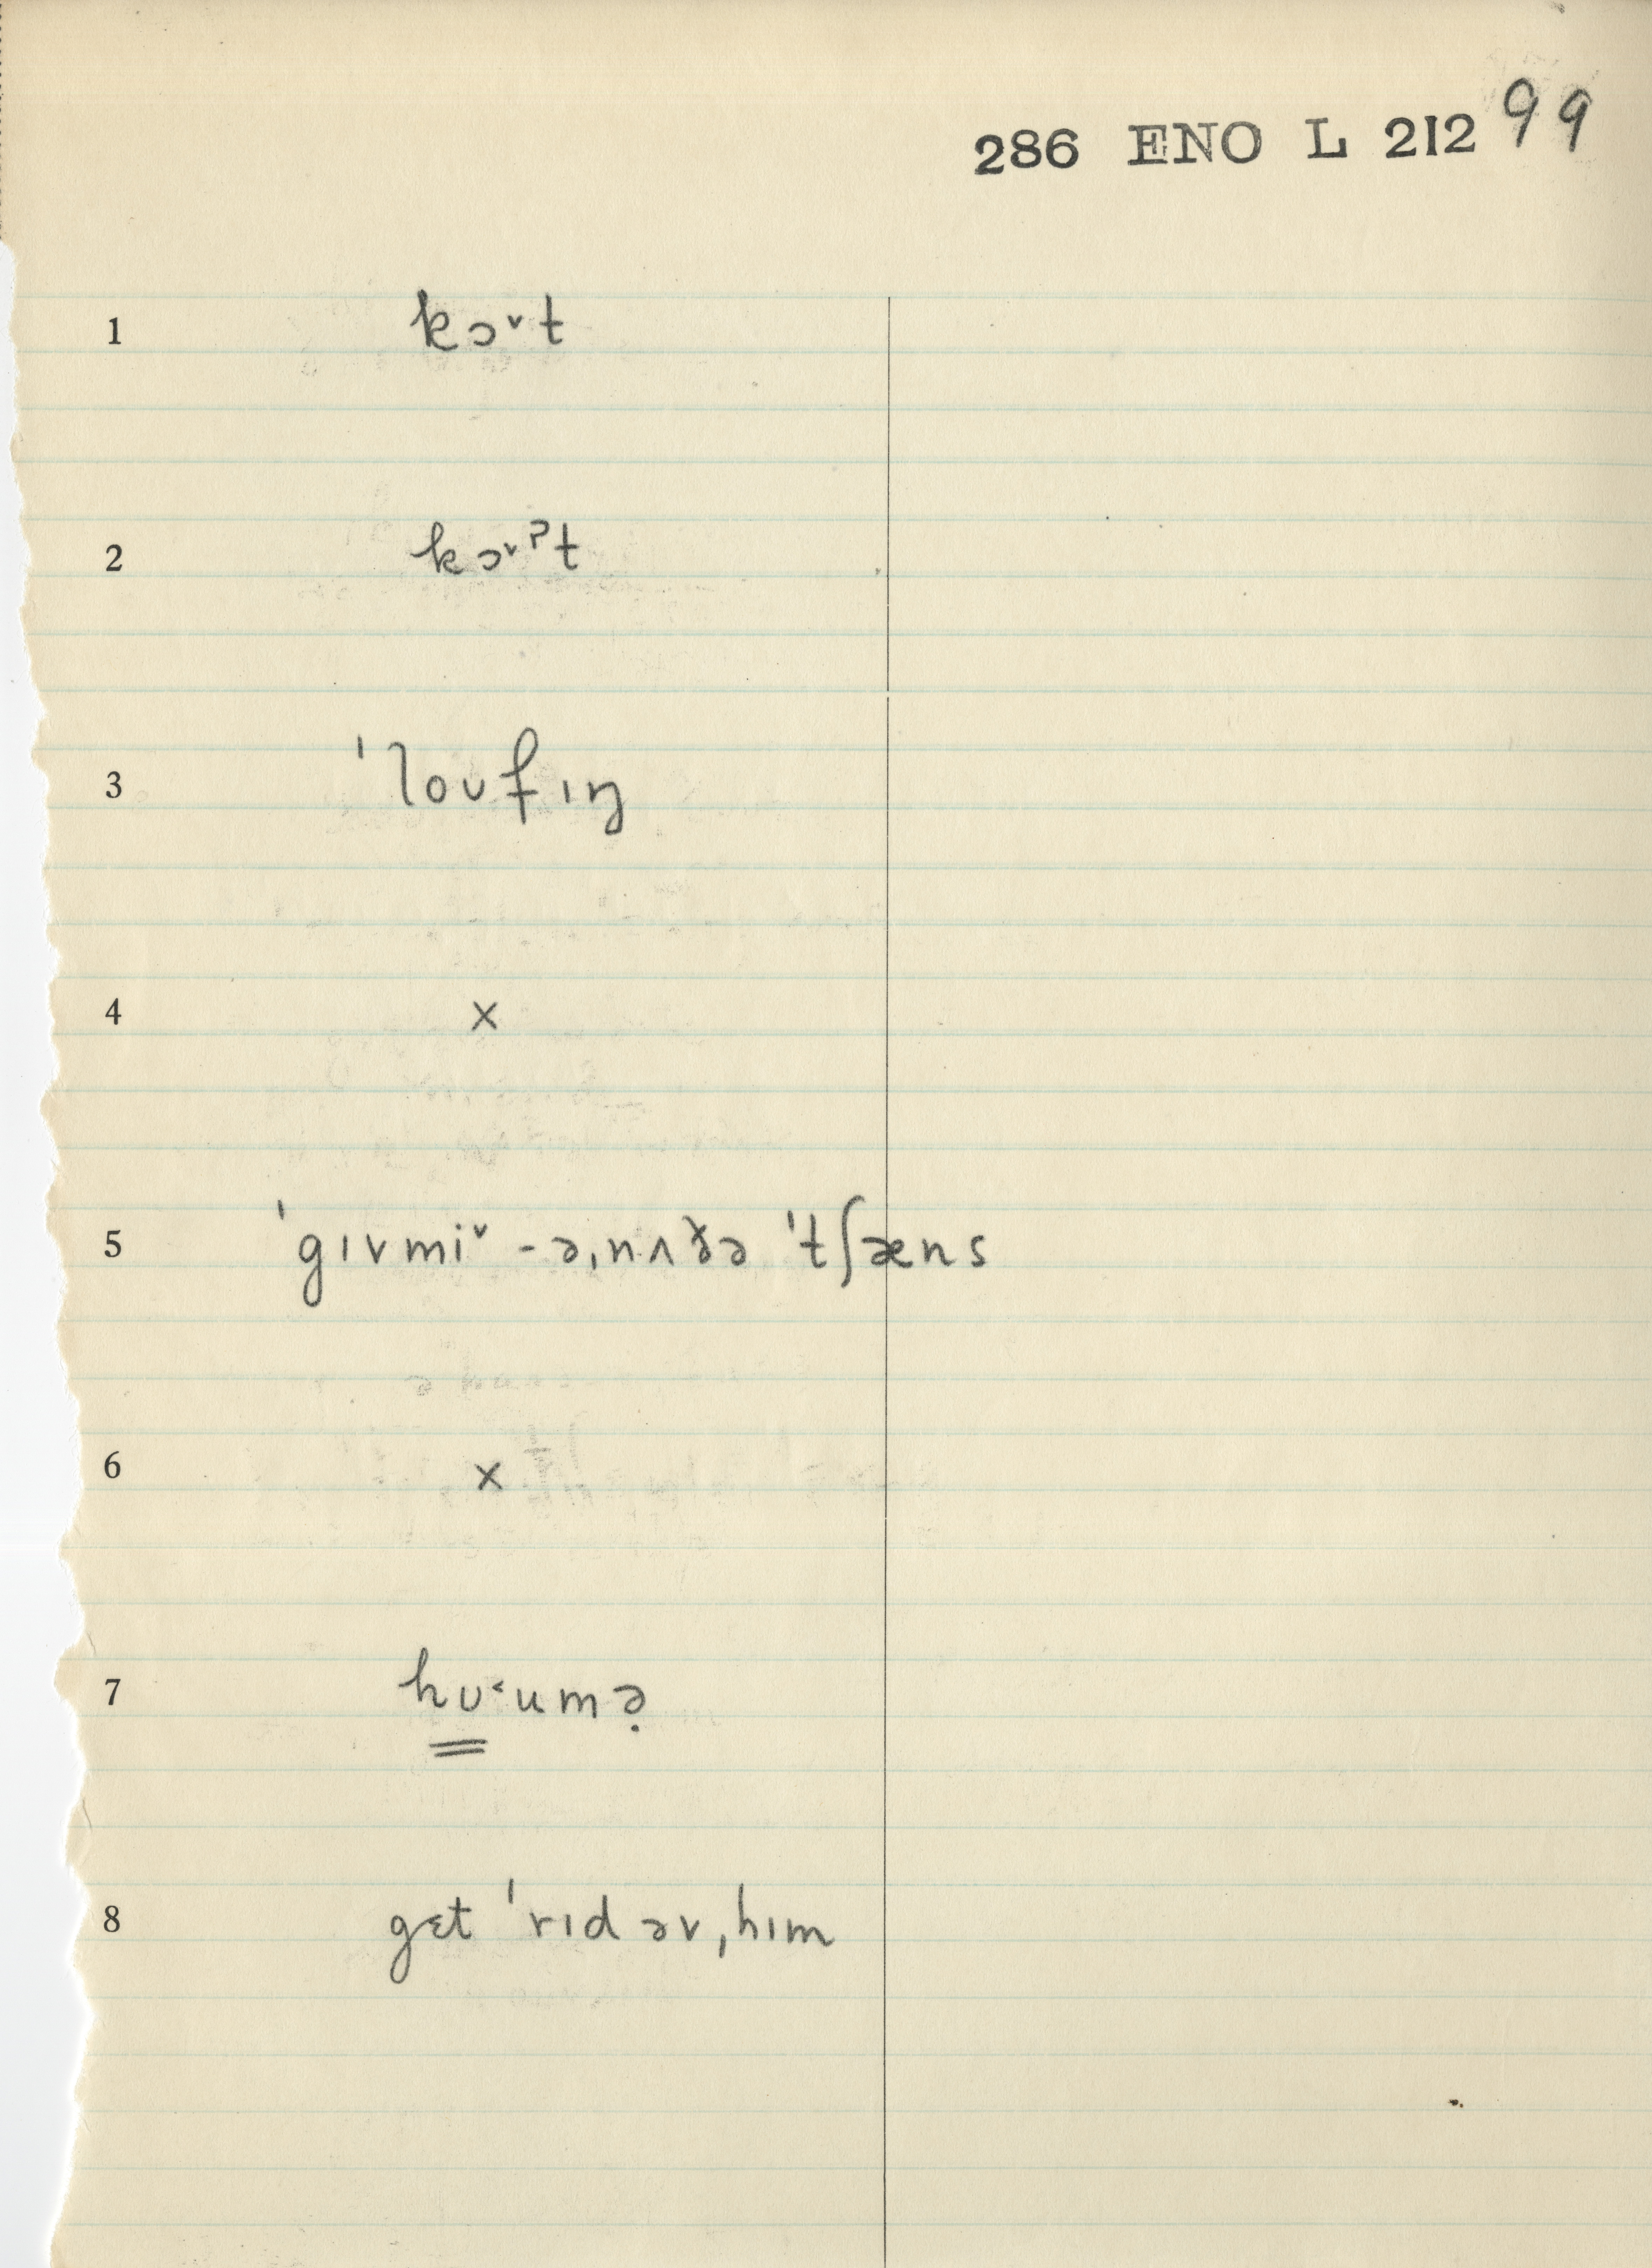 286 ENO L 212 99
1 kɔ˅t
2 kɔ˅ˀt
3 ˈloʊfɪŋ
4 ×
5 ˈgɪvmi˅ -əˌnʌðə ˈtʃæns
6 ×
7 hʊ˂umə̣
8 gɛt ˈrɪd əvˌhɪm